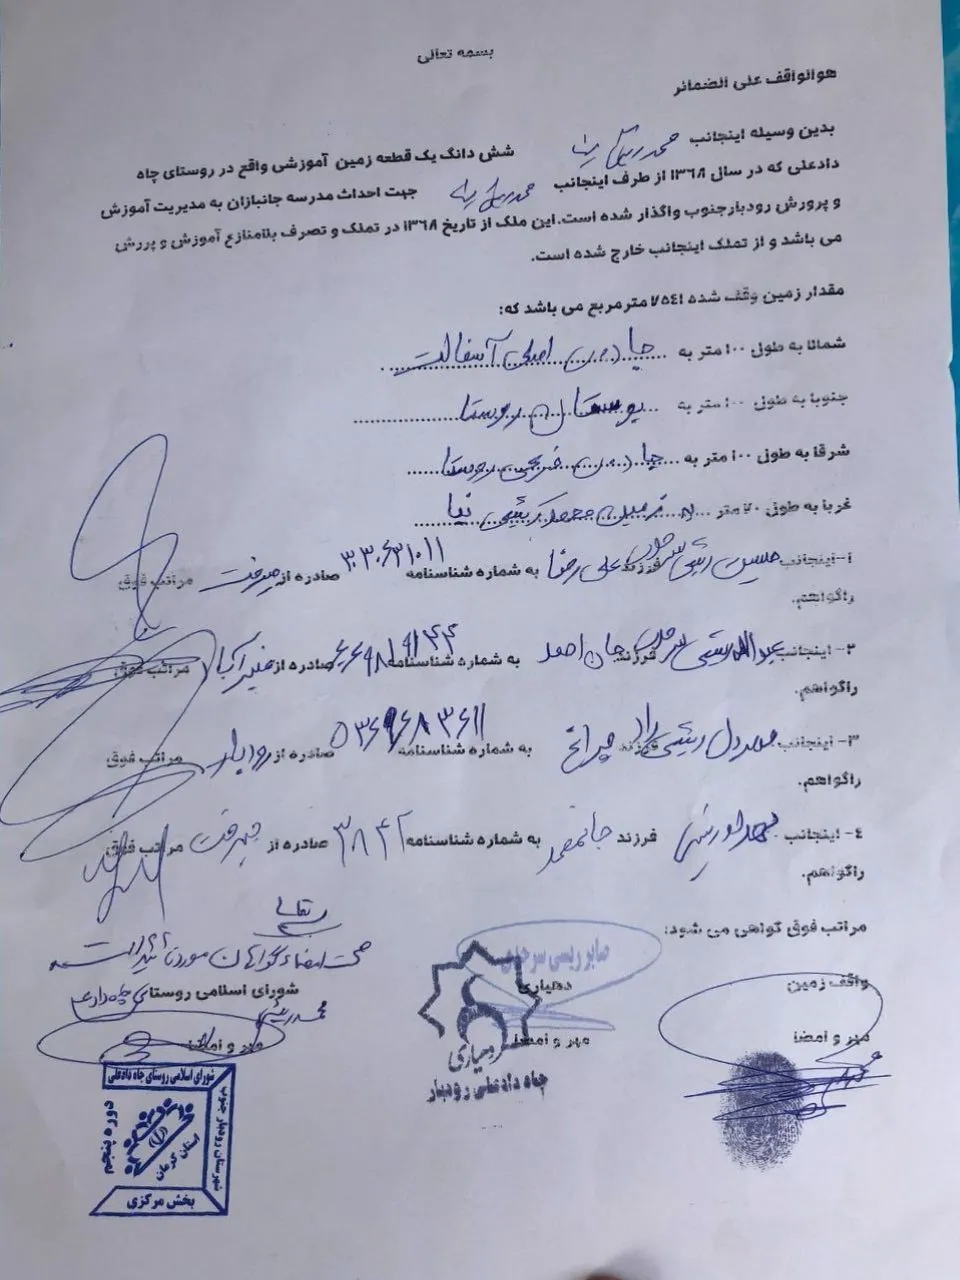 بسمه تعالی
هوالواقف علی الضمائر
بدین وسیله اینجانب محمد رئیسی شش دانگ یک قطعه زمین آموزشی واقع در روستای چاه
دادعلی که در سال ۱۳٦۸ از طرف اینجانب محمد رئیسی جهت احداث مدرسه جانبازان به مدیریت آموزش
و پرورش رودبارجنوب واگذار شده است.این ملک از تاریخ ۱۳٦۸ در تملک و تصرف بلامنازع آموزش و پررش
می باشد و از تملک اینجانب خارج شده است.
مقدار زمین وقف شده ۷٥٤۱ مترمربع می باشد که:
شمالا به طول ۱۰۰ متر به جاده اصلی آسفالت
جنوبا به طول ۱۰۰ متر به بوستان روستا
شرقا به طول ۱۰۰ متر به جاده فرعی روستا
غربا به طول ۷۰ متر به زمین محمد رئیسی نیا
۱-اینجانب حسین رئیسی سرحدی فرزند علی رضا به شماره شناسنامه صادره از جیرفت مراتب فوق
راگواهم.
۲- اینجانب عبدالله رئیسی سرحدی فرزند جان احمد به شماره شناسنامه صادره از مراتب فوق
راگواهم.
۳- اینجانب رئیسی راد فرزند چراغ به شماره شناسنامه صادره از رودبار مراتب فوق
راگواهم.
٤- اینجانب فرزند جانمحمد به شماره شناسنامه صادره از جیرفت مراتب فوق
راگواهم.
مراتب فوق گواهی می شود:
صحت امضاء گواهان مورد تائید است
صابر ریسی سرحدی
واقف زمین
دهیاری
شورای اسلامی روستای چاه دادعلی
محمد رئیسی
مهر و امضا
مهر و امضا
مهر و امضا
دهیاری
چاه دادعلی رودبار
شورای اسلامی روستای چاه دادعلی
شهرستان رودبار جنوب
استان کرمان
دوره پنجم
بخش مرکزی